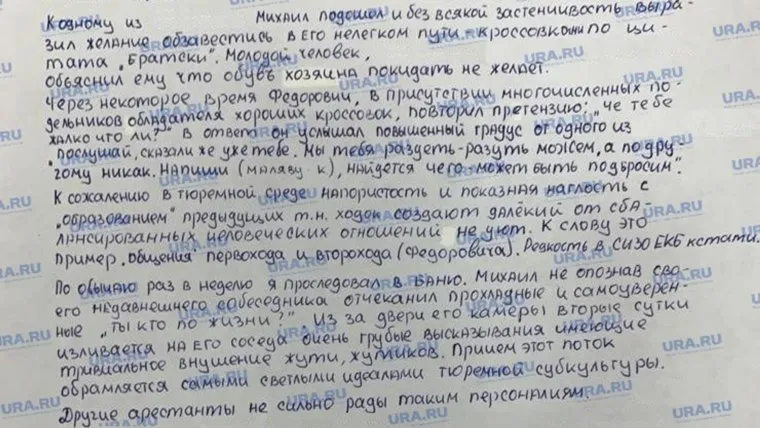 К одному из Михаил подошол и без всякой застенчивость выра-
зил желание обзавестись в его нелегком пути кроссовками по ци-
тата „Братски". Молодой человек,
объяснил ему что обувь хозяина покидать не желает.
Через некоторое время Федорович, в присутствии многочисленных по-
дельников обладателя хороших кроссовок, повторил претензию: „че тебе
жалко что ли?" В ответ он услышал повышенный градус от одного из
„послушай, сказали же уже тебе. Мы тебя раздеть-разуть можем, а по дру-
гому никак. Напиши (маляву - к), найдется чего - может быть подбросим".
К сожалению в тюремной среде напористость и показная наглость с
„образованием" предыдущих т.н. ходок создают далёкий от сба-
лансированных человеческих отношений не уют. К слову это
пример „общения" первохода и второхода (Федоровича). Редкость в СИЗО ЕКБ кстати.
По обычаю раз в неделю я проследовал в баню. Михаил не опознав сво-
его недавнешнего собеседника отчеканил прохладные и самоуверен-
ные „ты кто по жизни?" Из за двери его камеры вторые сутки
изливается на его соседа очень грубые высказывания имеющие
тривиальное внушение жути, жутиков. Причем этот поток
обрамляется самыми светлыми идеалами тюремной субкультуры.
Другие арестанты не сильно рады таким персоналиям.
URA.RU